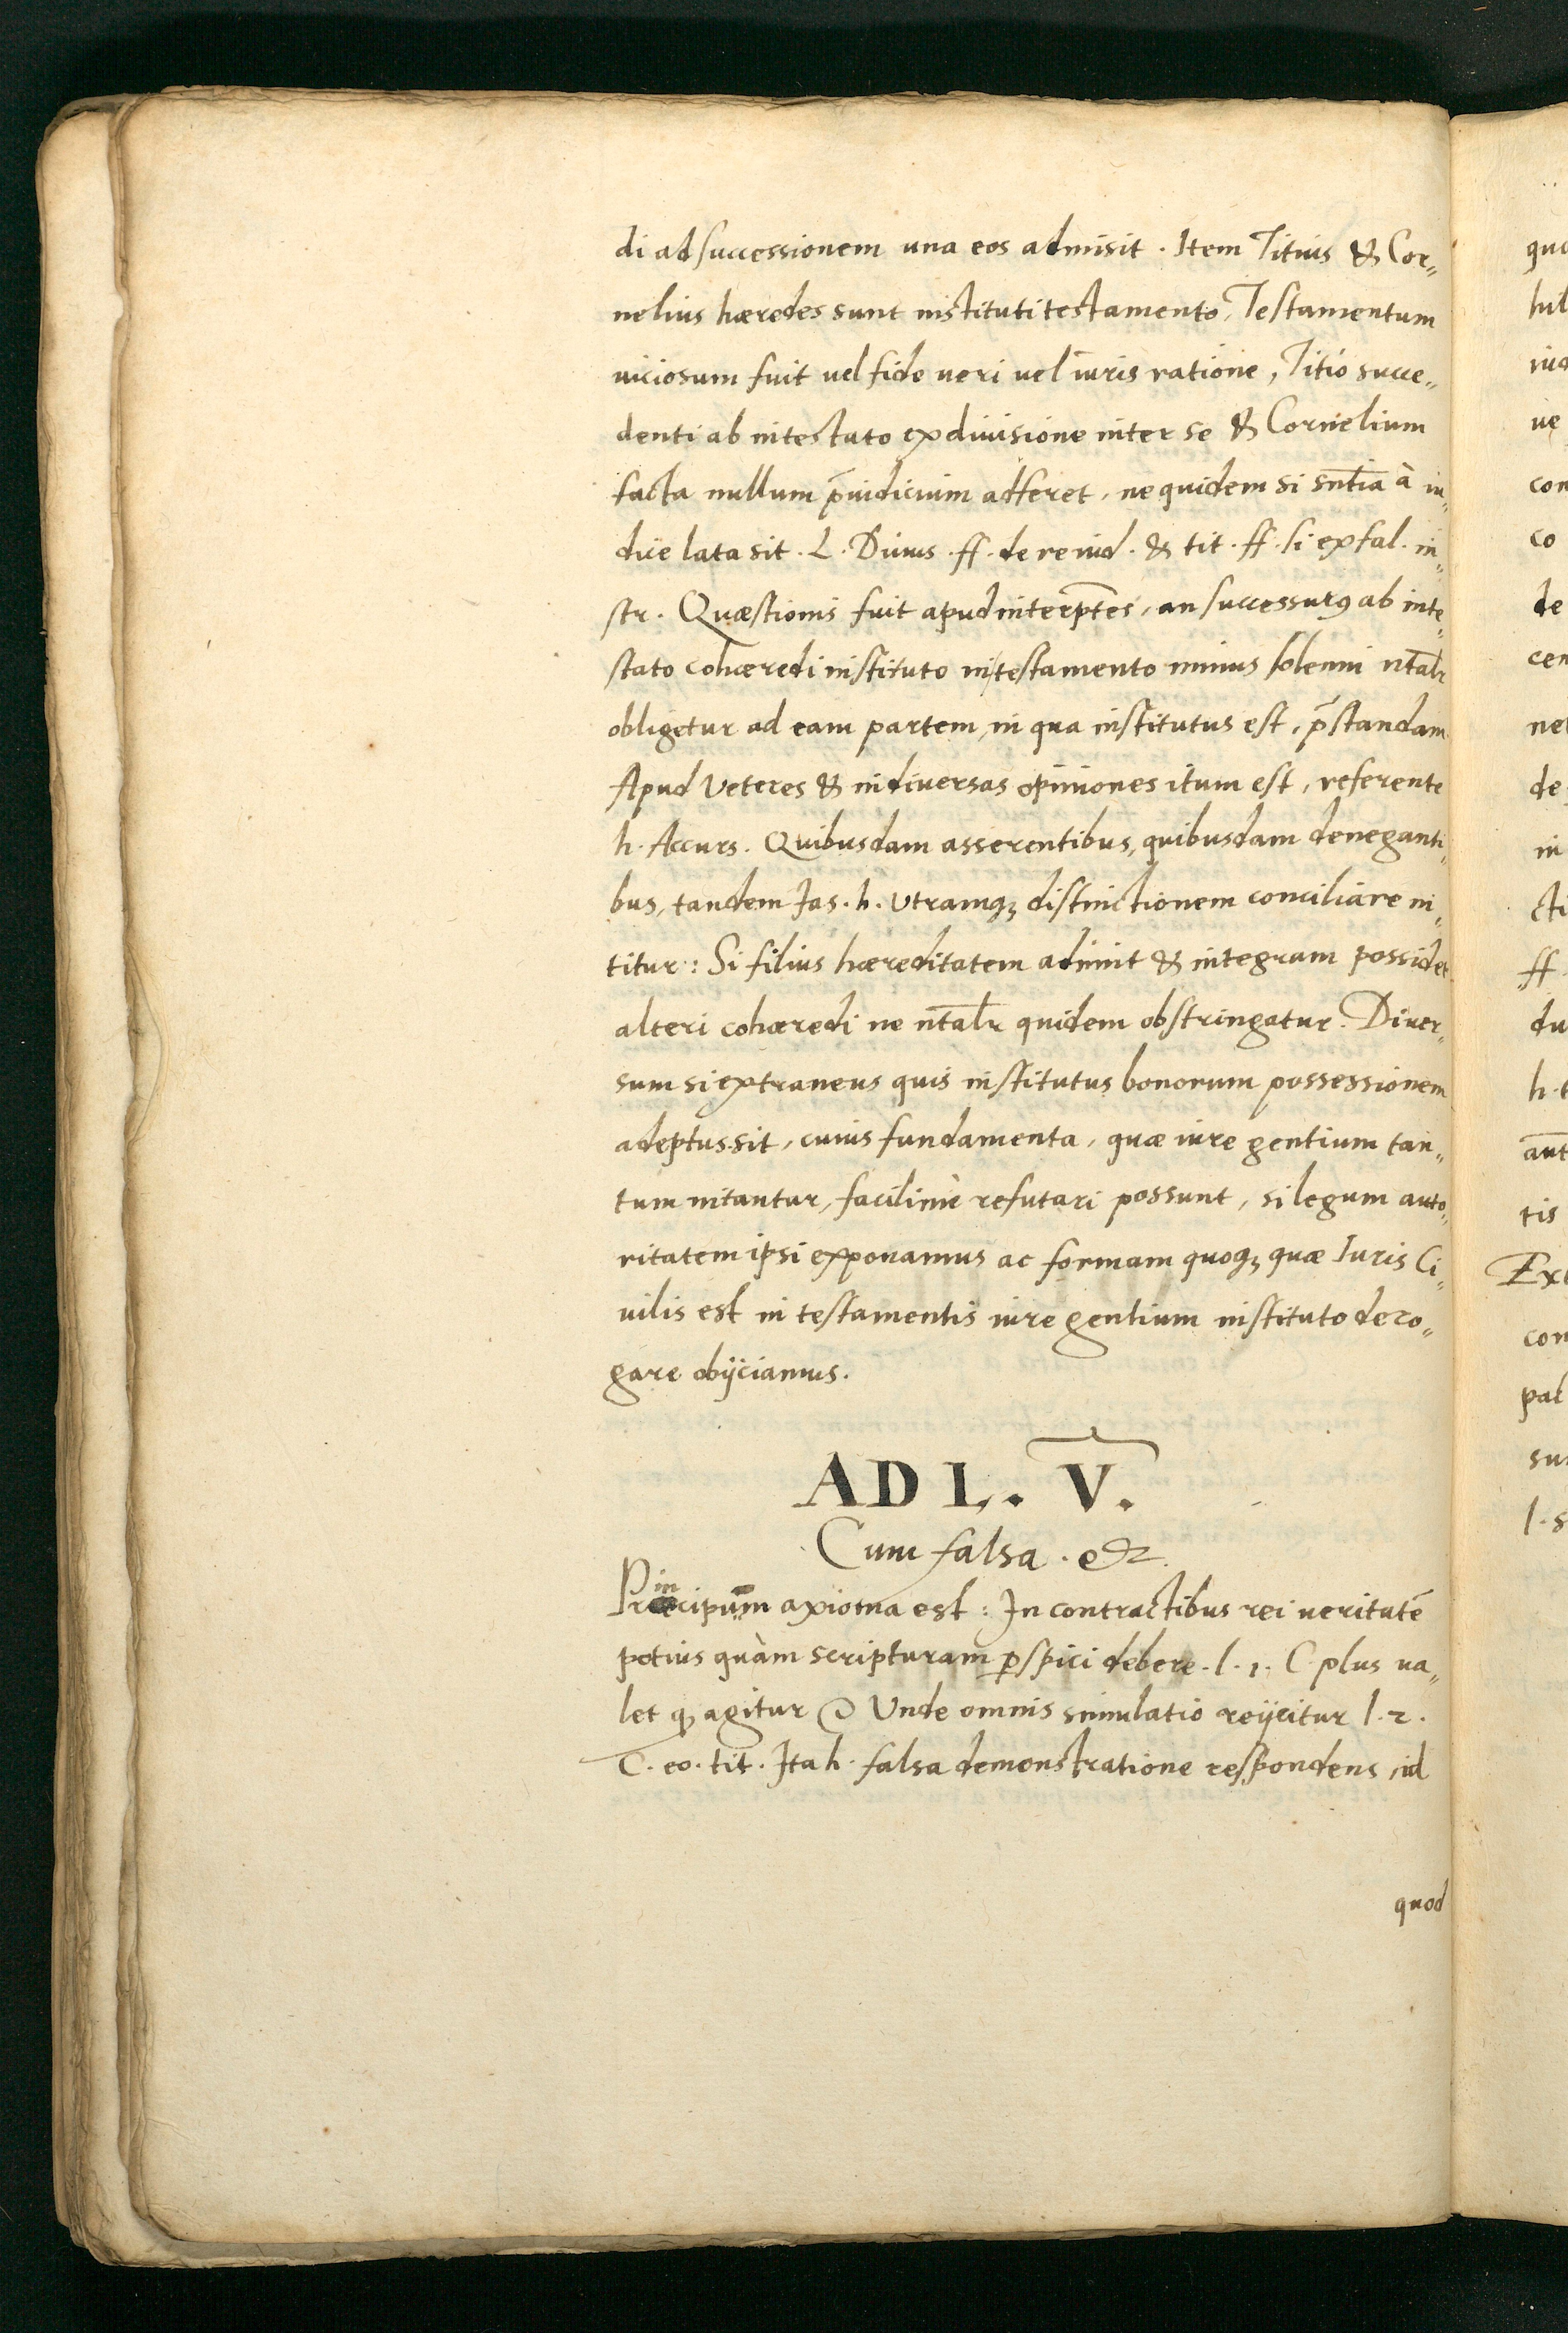 di ad successionem una eos admisit. Item Titius & Cor„
nelius hæredes sunt instituti testamento, Testamentum
uiciosum fuit uel fide ueri uel iuris ratione, Titio succe„
denti ab intestato ex diuisione inter se & Cornelium
facta nullum p̄iudicium adferet, ne quidem si sn̄tia à iu„
dice lata sit. L. Diuus. ff. de re iud. & tit. ff. si ex fal. in„
str. Quæstionis fuit apud interp̄tes, an successurꝯ ab inte„
stato cohæredi instituto in testamento minus solenni nt̄alr
obligetur ad eam partem, in qua institutus est, p̄standam
Apud Veteres & in diuersas opiniones itum est, referente
h. Accurs. Quibusdam asserentibus, quibusdam deneganti„
bus, tandem Jas. h. Vtramqꝫ distinctionem conciliare ni„
titur: Si filius hæreditatem adimit & integram possidet
alteri cohæredi ne nt̄alr quidem obstringatur. Diuer„
sum si extraneus quis institutus bonorum possessionem
adeptus sit, cuius fundamenta, quæ iure gentium tan„
tum nitantur, facilimè refutari possunt, si legum auto„
ritatem ipsi exponamus ac formam quoqꝫ quæ Iuris Ci„
uilis est in testamentis iure gentium instituto dero„
gare obijciamus.
AD L. V.
Cum falsa. &c.
Principum axioma est: In contractibus rei ueritatē
potius quàm scripturam ꝑspici debere. l. 1. C. plus ua„
let qꝫ agitur Unde omnis simulatio reijcitur l. 2.
C. eo. tit. Ita h. falsa demonstratione respondens, id
quod